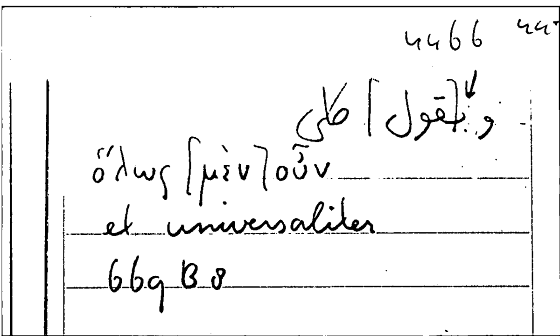 4466 44
و[بقول] كلي
ὅλως [μὲν] οὖν
et universaliter
669 B 8